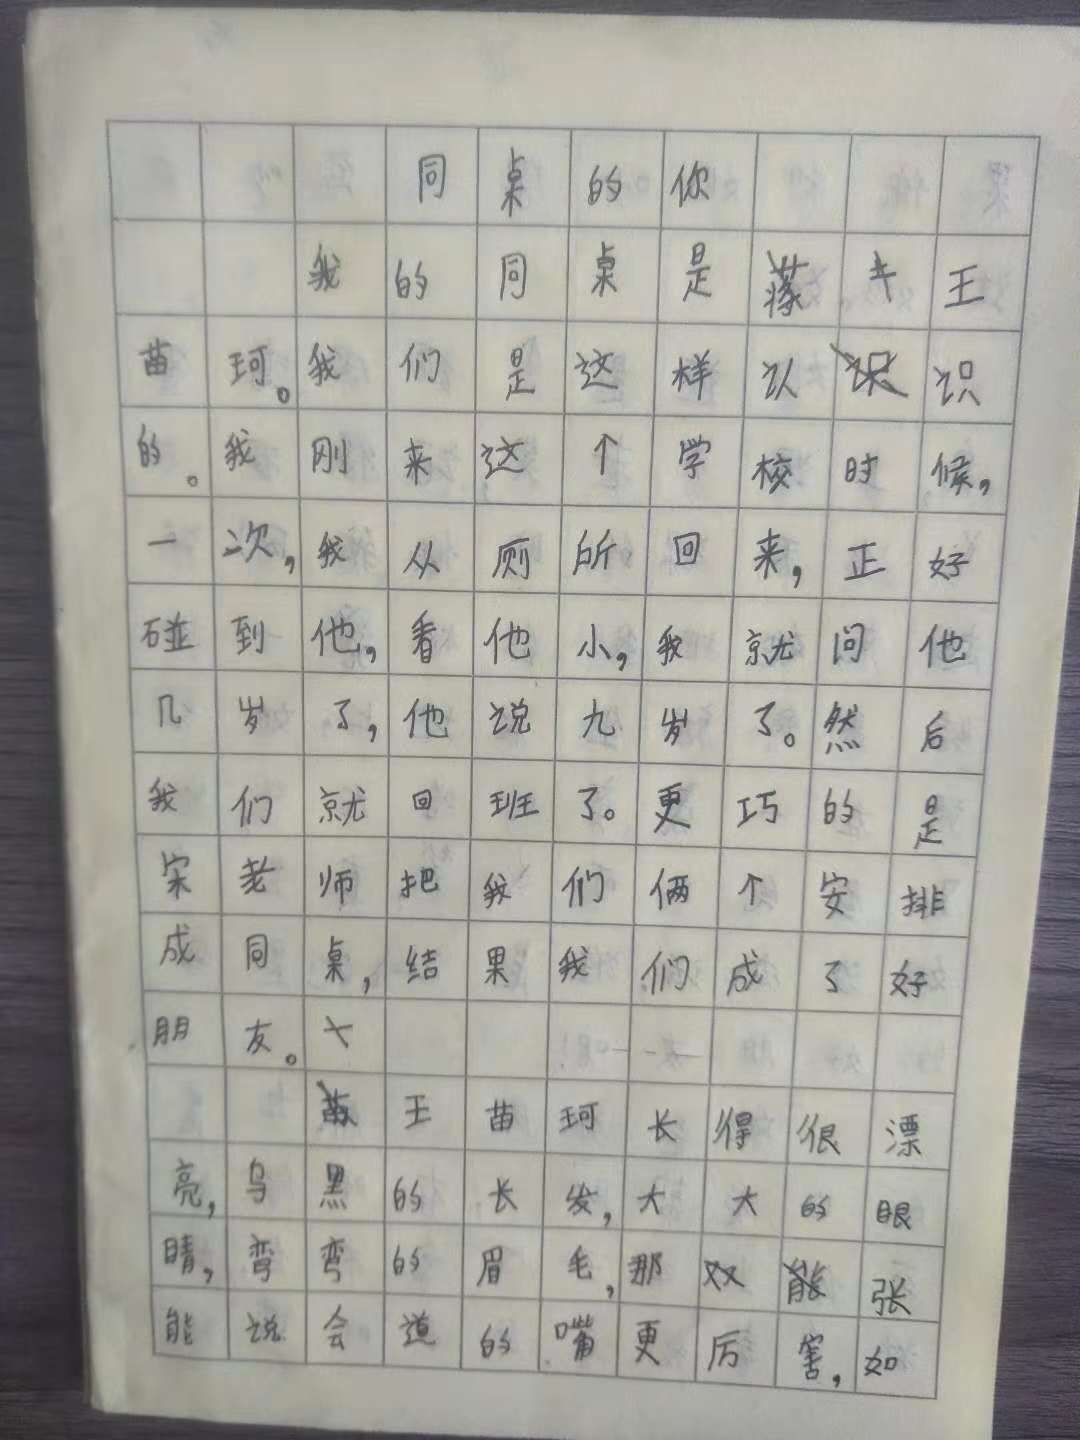 同桌的你
我的同桌是王
苗珂。我们是这样认识
的。我刚来这个学校时候，
一次，我从厕所回来，正好
碰到他，看他小，我就问他
几岁了，他说九岁了。然后
我们就回班了。更巧的是
宋老师把我们俩个安排
成同桌，结果我们成了好
朋友。
王苗珂长得很漂
亮，乌黑的长发，大大的眼
睛，弯弯的眉毛，那张
能说会道的嘴更厉害，如